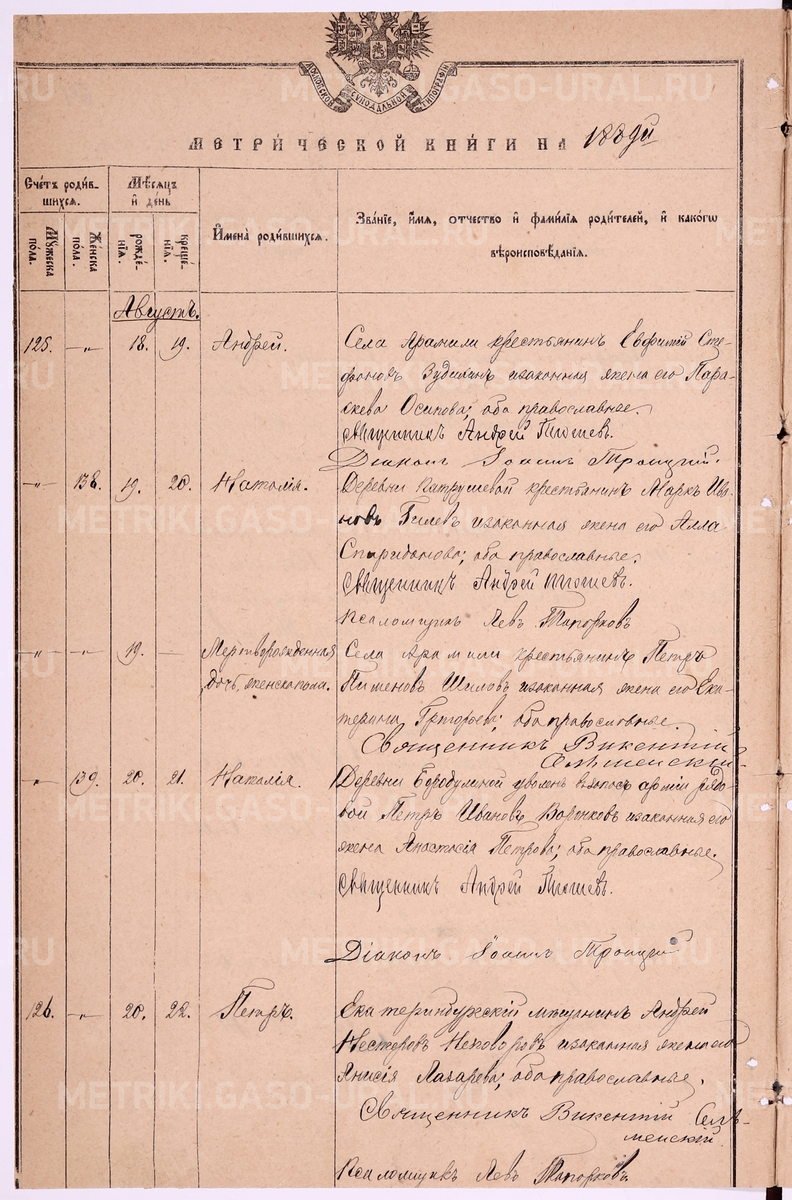 МОСКОВСКОЙ СѴНОДАЛЬНОЙ ТИПОГРАФІИ
МЕТРИ́ЧЕСКОЙ КНИ́ГИ НА 188 гѡдъ
Сче́тъ роди́в-
шихся.
Мѣ́сяцъ
и҆ де́нь
И҆мена̀ роди́вшихся.
Зва́нїе, и҆́мя, ѻ҆́тчество и҆ фами́лїя роди́телей, и҆ како́гѡ
вѣроисповѣ́данїя.
Мꙋ́жеска
по́ла.
Же́нска
по́ла.
рожде́-
нїѧ.
креще́-
нїѧ.
Августъ.
125. —„— 18. 19. Андрей. Села Арамили крестьянинъ Евфимій Сте-
фановъ и законная жена его Пара-
скева Осипова; оба православные.
Священникъ Андрей
Діаконъ Іоаннъ Троицкій.
—„— 138. 19. 20. Наталія. Деревни Патрушевой крестьянинъ Маркъ Ива-
новъ и законная жена его Алла
Спиридонова; оба православные.
Священникъ Андрей
Псаломщикъ Левъ Топорковъ
—„— —„— 19. — Мертворожденная Села Арамили крестьянинъ Петръ
дочь, женска пола. Пименовъ Шиловъ и законная жена его Ека-
терина Григорьева; оба православные.
Священникъ Викентій
„ 139. 20. 21. Наталія. Деревни Бородулиной уволен. въ запасъ арміи рядо-
вой Петръ Ивановъ и законная его
жена Анастасія Петрова; оба православные.
Священникъ Андрей
Діаконъ Іоаннъ Троицкій
126. —„— 20. 22. Петръ. Екатеринбургскій мѣщанинъ Андрей
Несторовъ и законная жена его
Анисія Лазарева; оба православные.
Священникъ Викентій
Псаломщикъ Левъ Топорковъ
METRIKI.GASO-URAL.RU